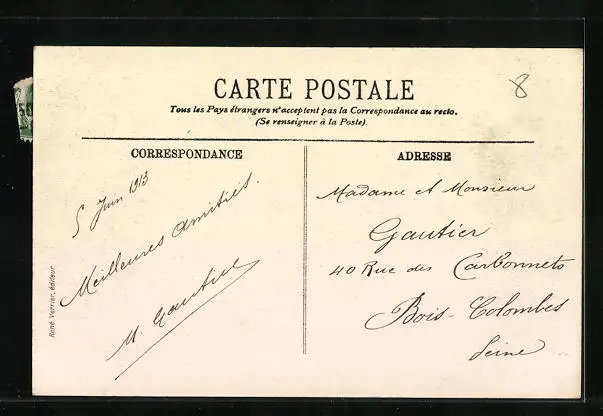 8
CARTE POSTALE
Tous les Pays étrangers n'acceptent pas la Correspondance au recto.
(Se renseigner à la Poste).
CORRESPONDANCE
5 Juin 1913
Meilleures amitiés.
M. Gautier
René Verrier, éditeur.
ADRESSE
Madame et Monsieur
Gautier
40 Rue des Carbonnets
Bois-Colombes
Seine